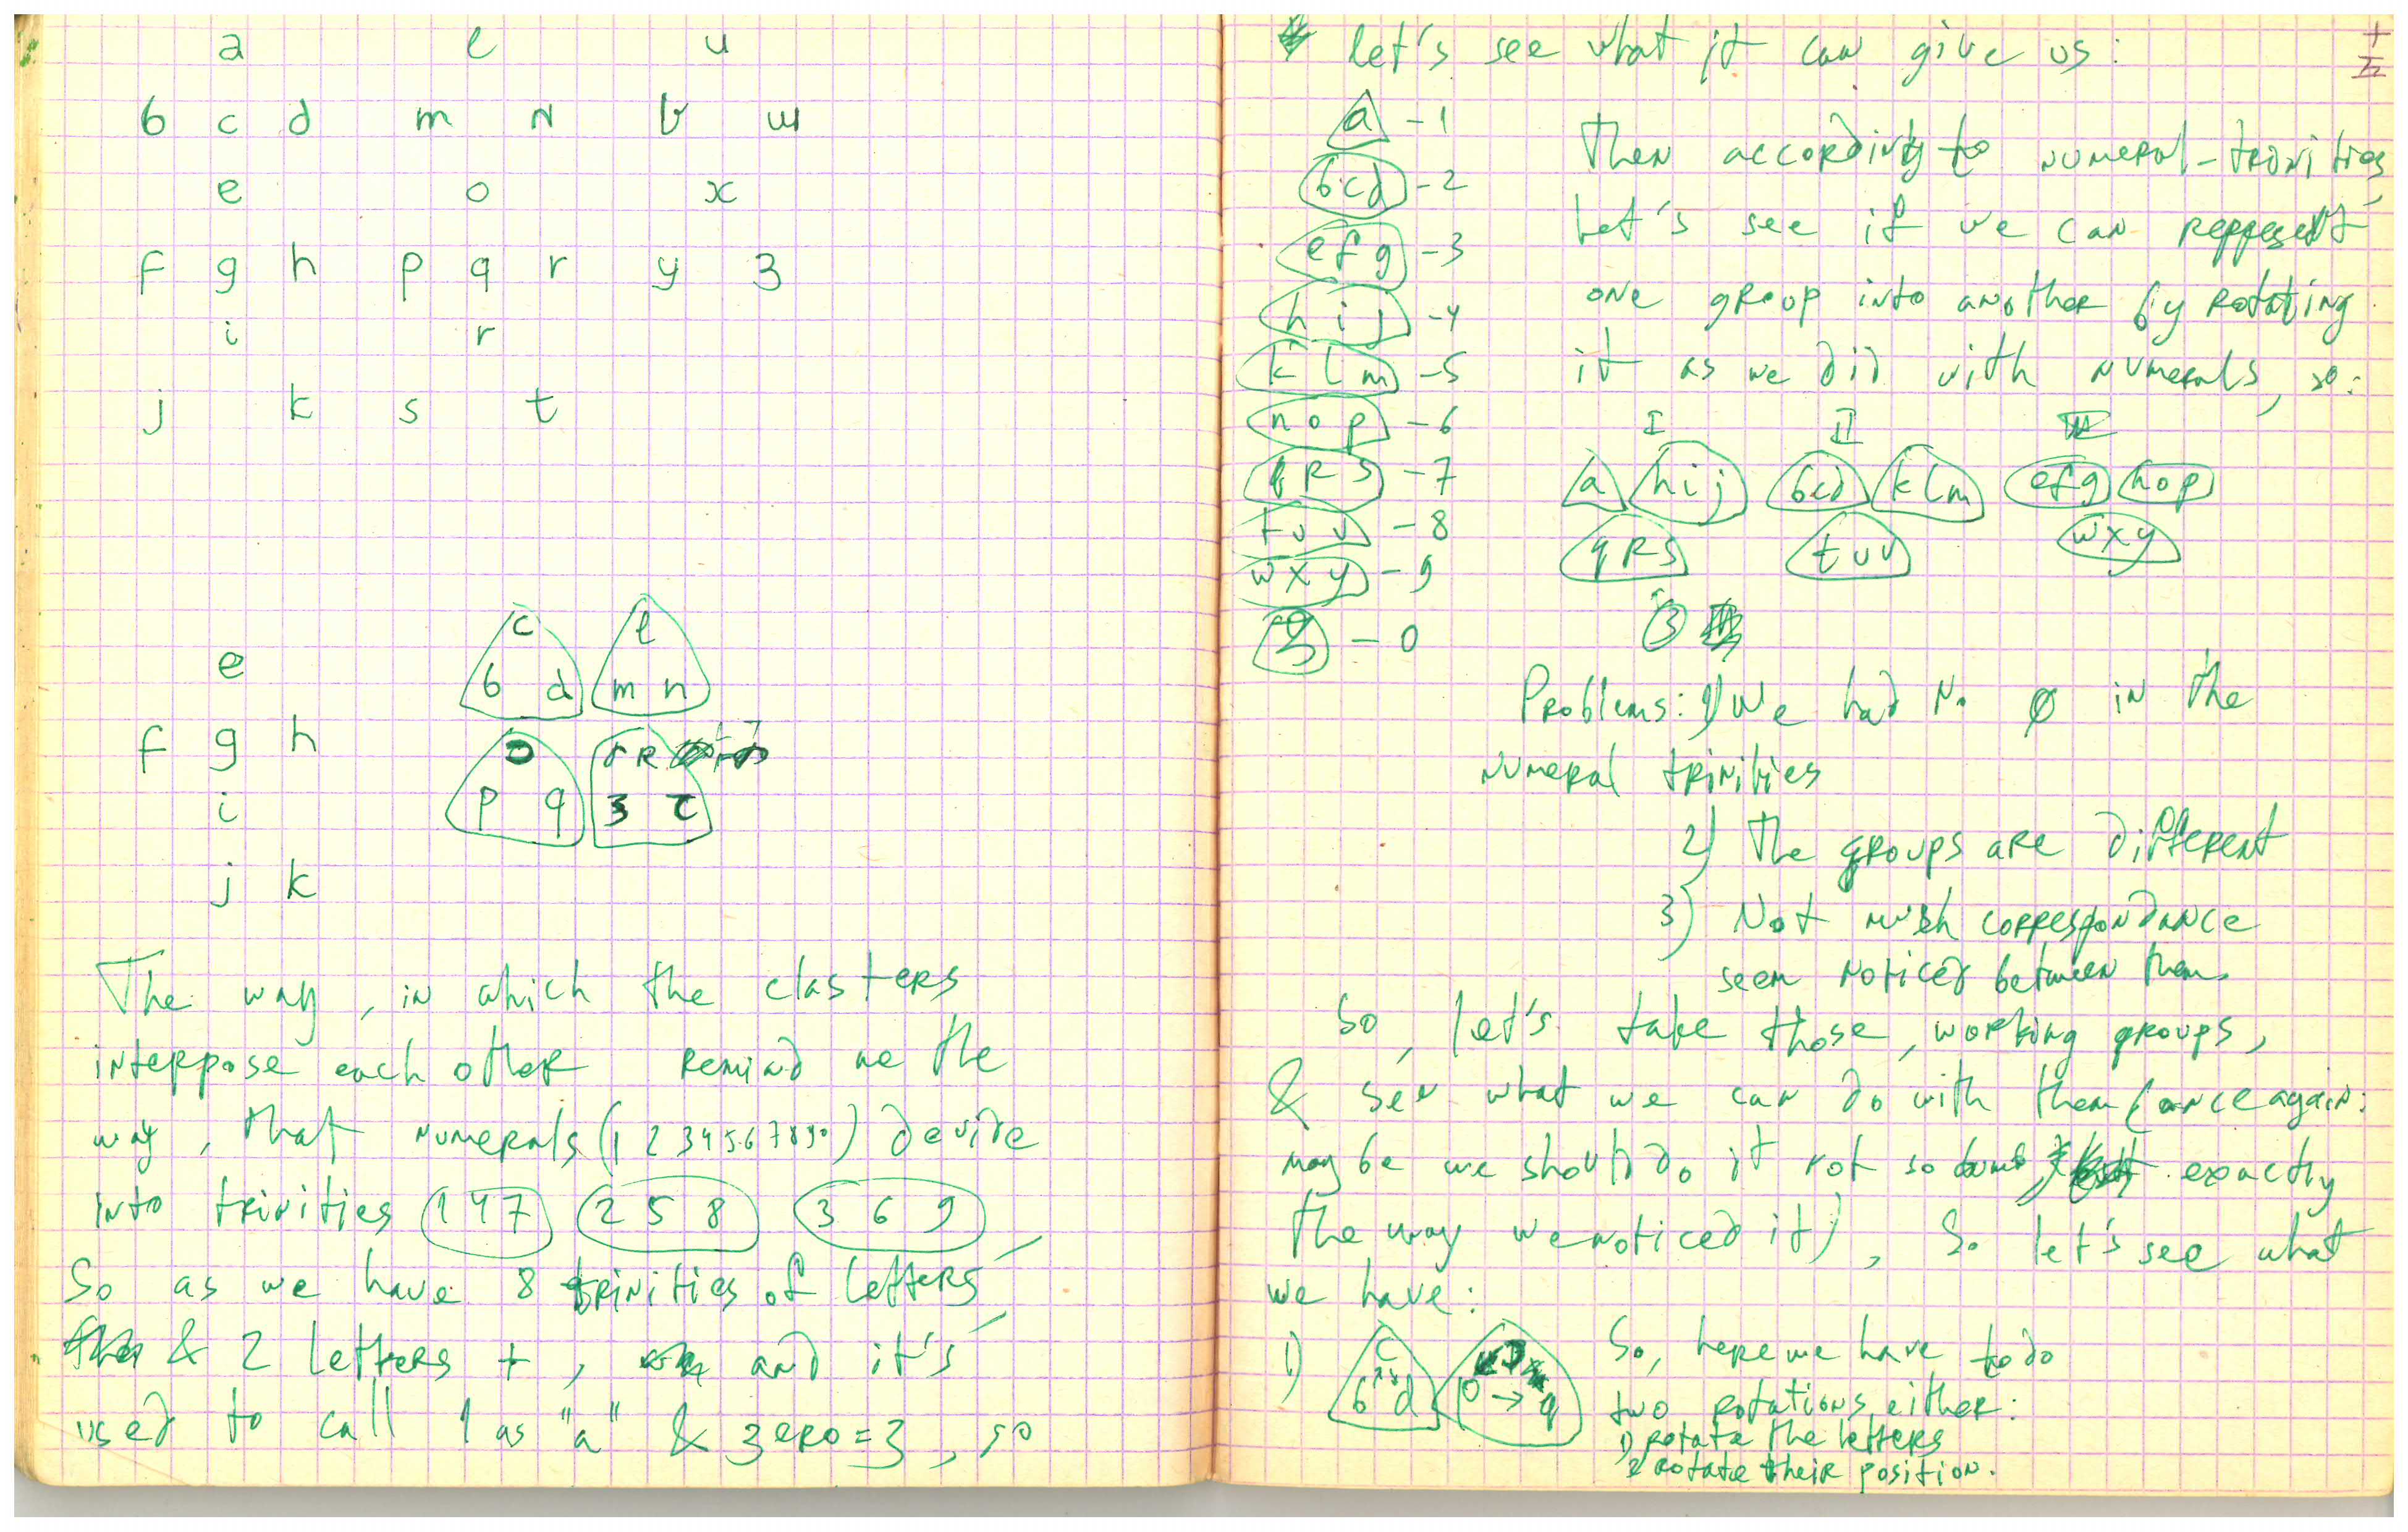 a l u
b c d m n v w
e o x
f g h p q r y z
i r
j k s t
c l
e
b d m n
f g h o r R
i p q
j k
The way, in which the clasters
interpose each other remind me the
way, that numerals (1 2 3 4 5 6 7 8 9 0) devide
into trinities 1 4 7 2 5 8 3 6 9
So as we have 8 trinities of letters
& 2 letters +, and it's
used to call 1 as "a" & zero = z, so
let's see what it can give us:
a - 1
bcd - 2
efg - 3
hij - 4
klm - 5
nop - 6
qRS - 7
tuv - 8
wxy - 9
z - 0
Then according to numeral-trinities,
let's see if we can reppesent
one group into another by rotating
it as we did with numerals, so:
I II III
a hij bcd klm efg nop
qRS tuv wxy
z
Problems: 1) We had No 0 in the
numeral trinities
2) The groups are different
3) Not much correspondance
seem noticed between them.
So, let's take those, working groups,
& see what we can do with them (once again:
may be we should do it not so dumb, exactly
the way we noticed it), So let's see what
we have:
1) c
b d p → q
So, here we have to do
two rotations either:
1) rotate the letters
2 rotate their position.